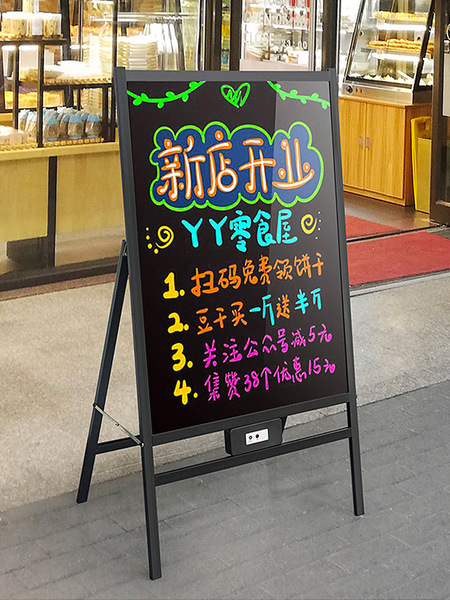 新店开业
YY零食屋
1. 扫码免费领饼干
2. 豆干买一斤送半斤
3. 关注公众号减5元
4. 集赞38个优惠15元